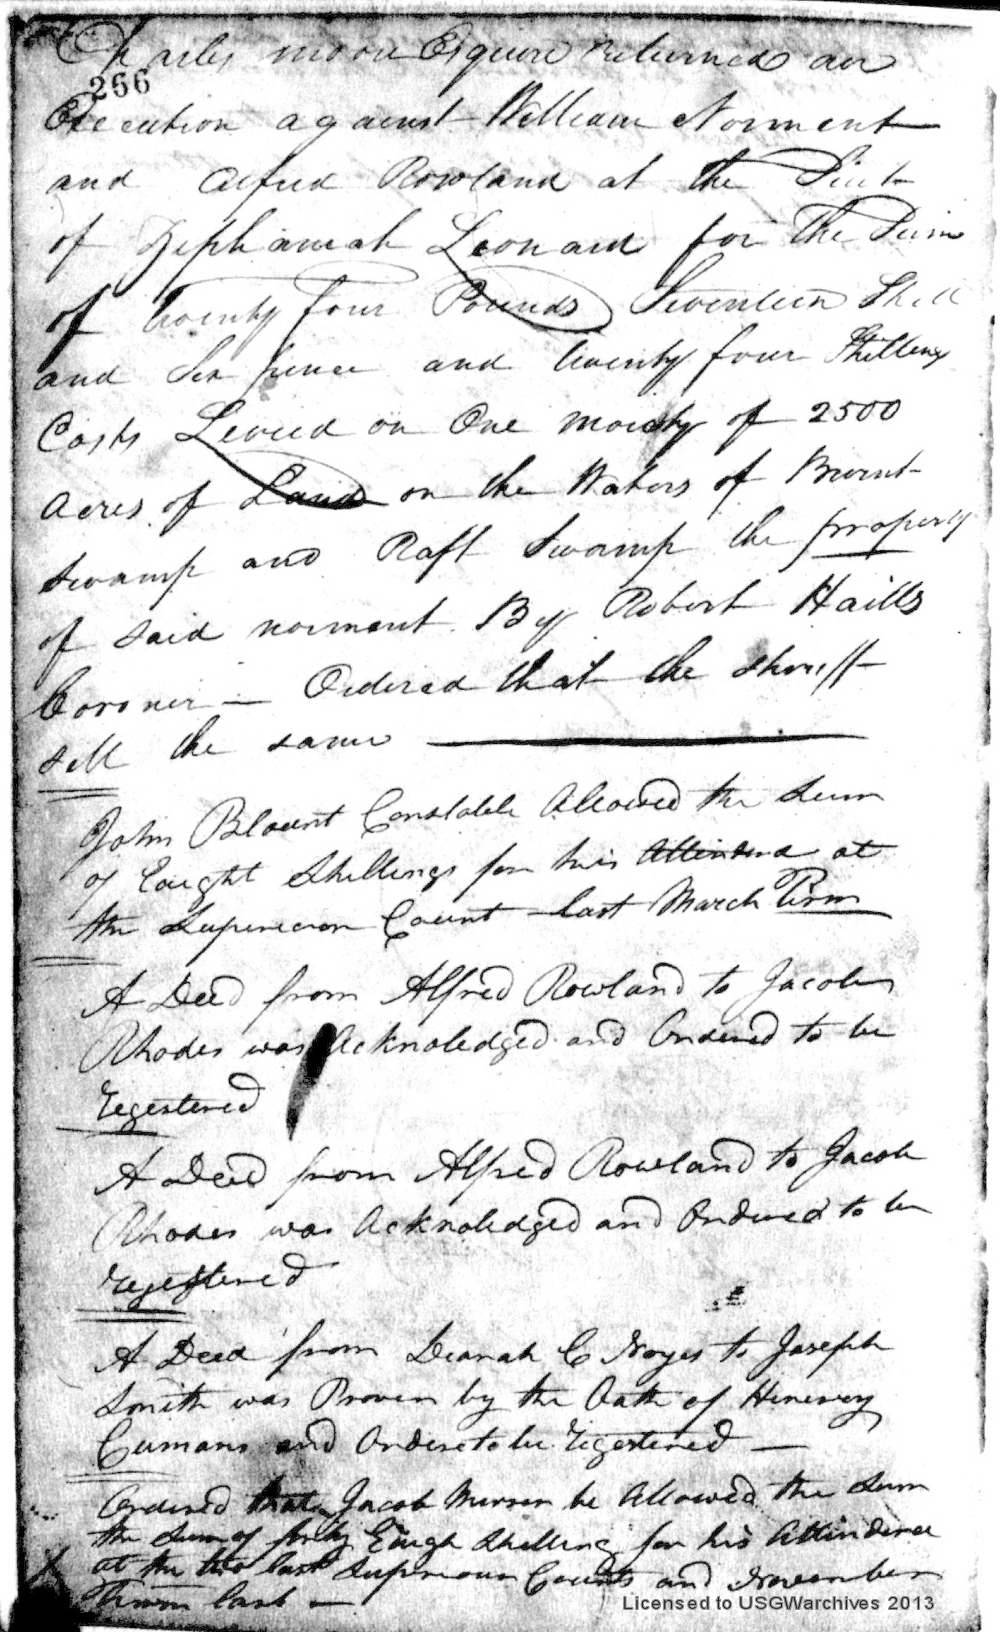 Charles moore Esquire returned an
266
Execution against William Norment
and Alfred Rowland at the Suit
of Zephaniah Leonard for the Sum
of twenty four Pounds Seventeen Shill
and Six pence and twenty four Shillings
Costs Levied on One moiety of 2500
Acres of Land on the Waters of Burnt
Swamp and Raft Swamp the property
of said norment By Robert Haills
Coroner — Ordered that the Sheriff
sell the same
John Blount Constable Allowed the Sum
of Eaight Shillings for his Attendend at
the Superieor Court last March Term
A Deed from Alfred Rowland to Jacob
Rhodes was Acknoledged and Ordered to be
Regestered
A Deed from Alfred Rowland to Jacob
Rhodes was Acknoledged and Ordered to be
Regestered
A Deed from C Noyes to Joseph
Smith was Proven by the Oath of
Cumans and Ordere to be Regestered —
Ordered that Jacob be Allowed the Sum
the Sum of forty Eaigh Shelling for his Attindence
at the two last Superiour Courts and November
Term last —
Licensed to USGWarchives 2013